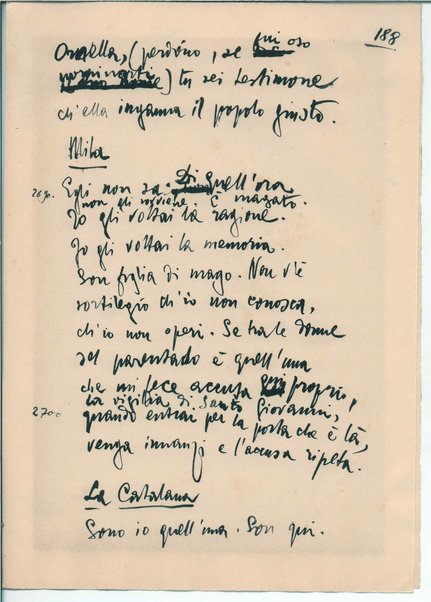 188
Ornella, (perdóno, se qui oso
nominarti) tu sei testimone
ch'ella inganna il popolo giusto.
Mila
2690. Egli non sa. Di quell'ora
non gli sovviene. È magato.
Io gli voltai la ragione.
Io gli voltai la memoria.
Son figlia di mago. Non v'è
sortilegio ch'io non conosca,
ch'io non operi. Se tra le donne
del parentado è quell'una
che mi fece accusa proprio,
la vigilia di Santo Giovanni,
2700 quando entrai per la porta che è là,
venga innanzi e l'accusa ripeta.
La Catalana
Sono io quell'una. Son qui.